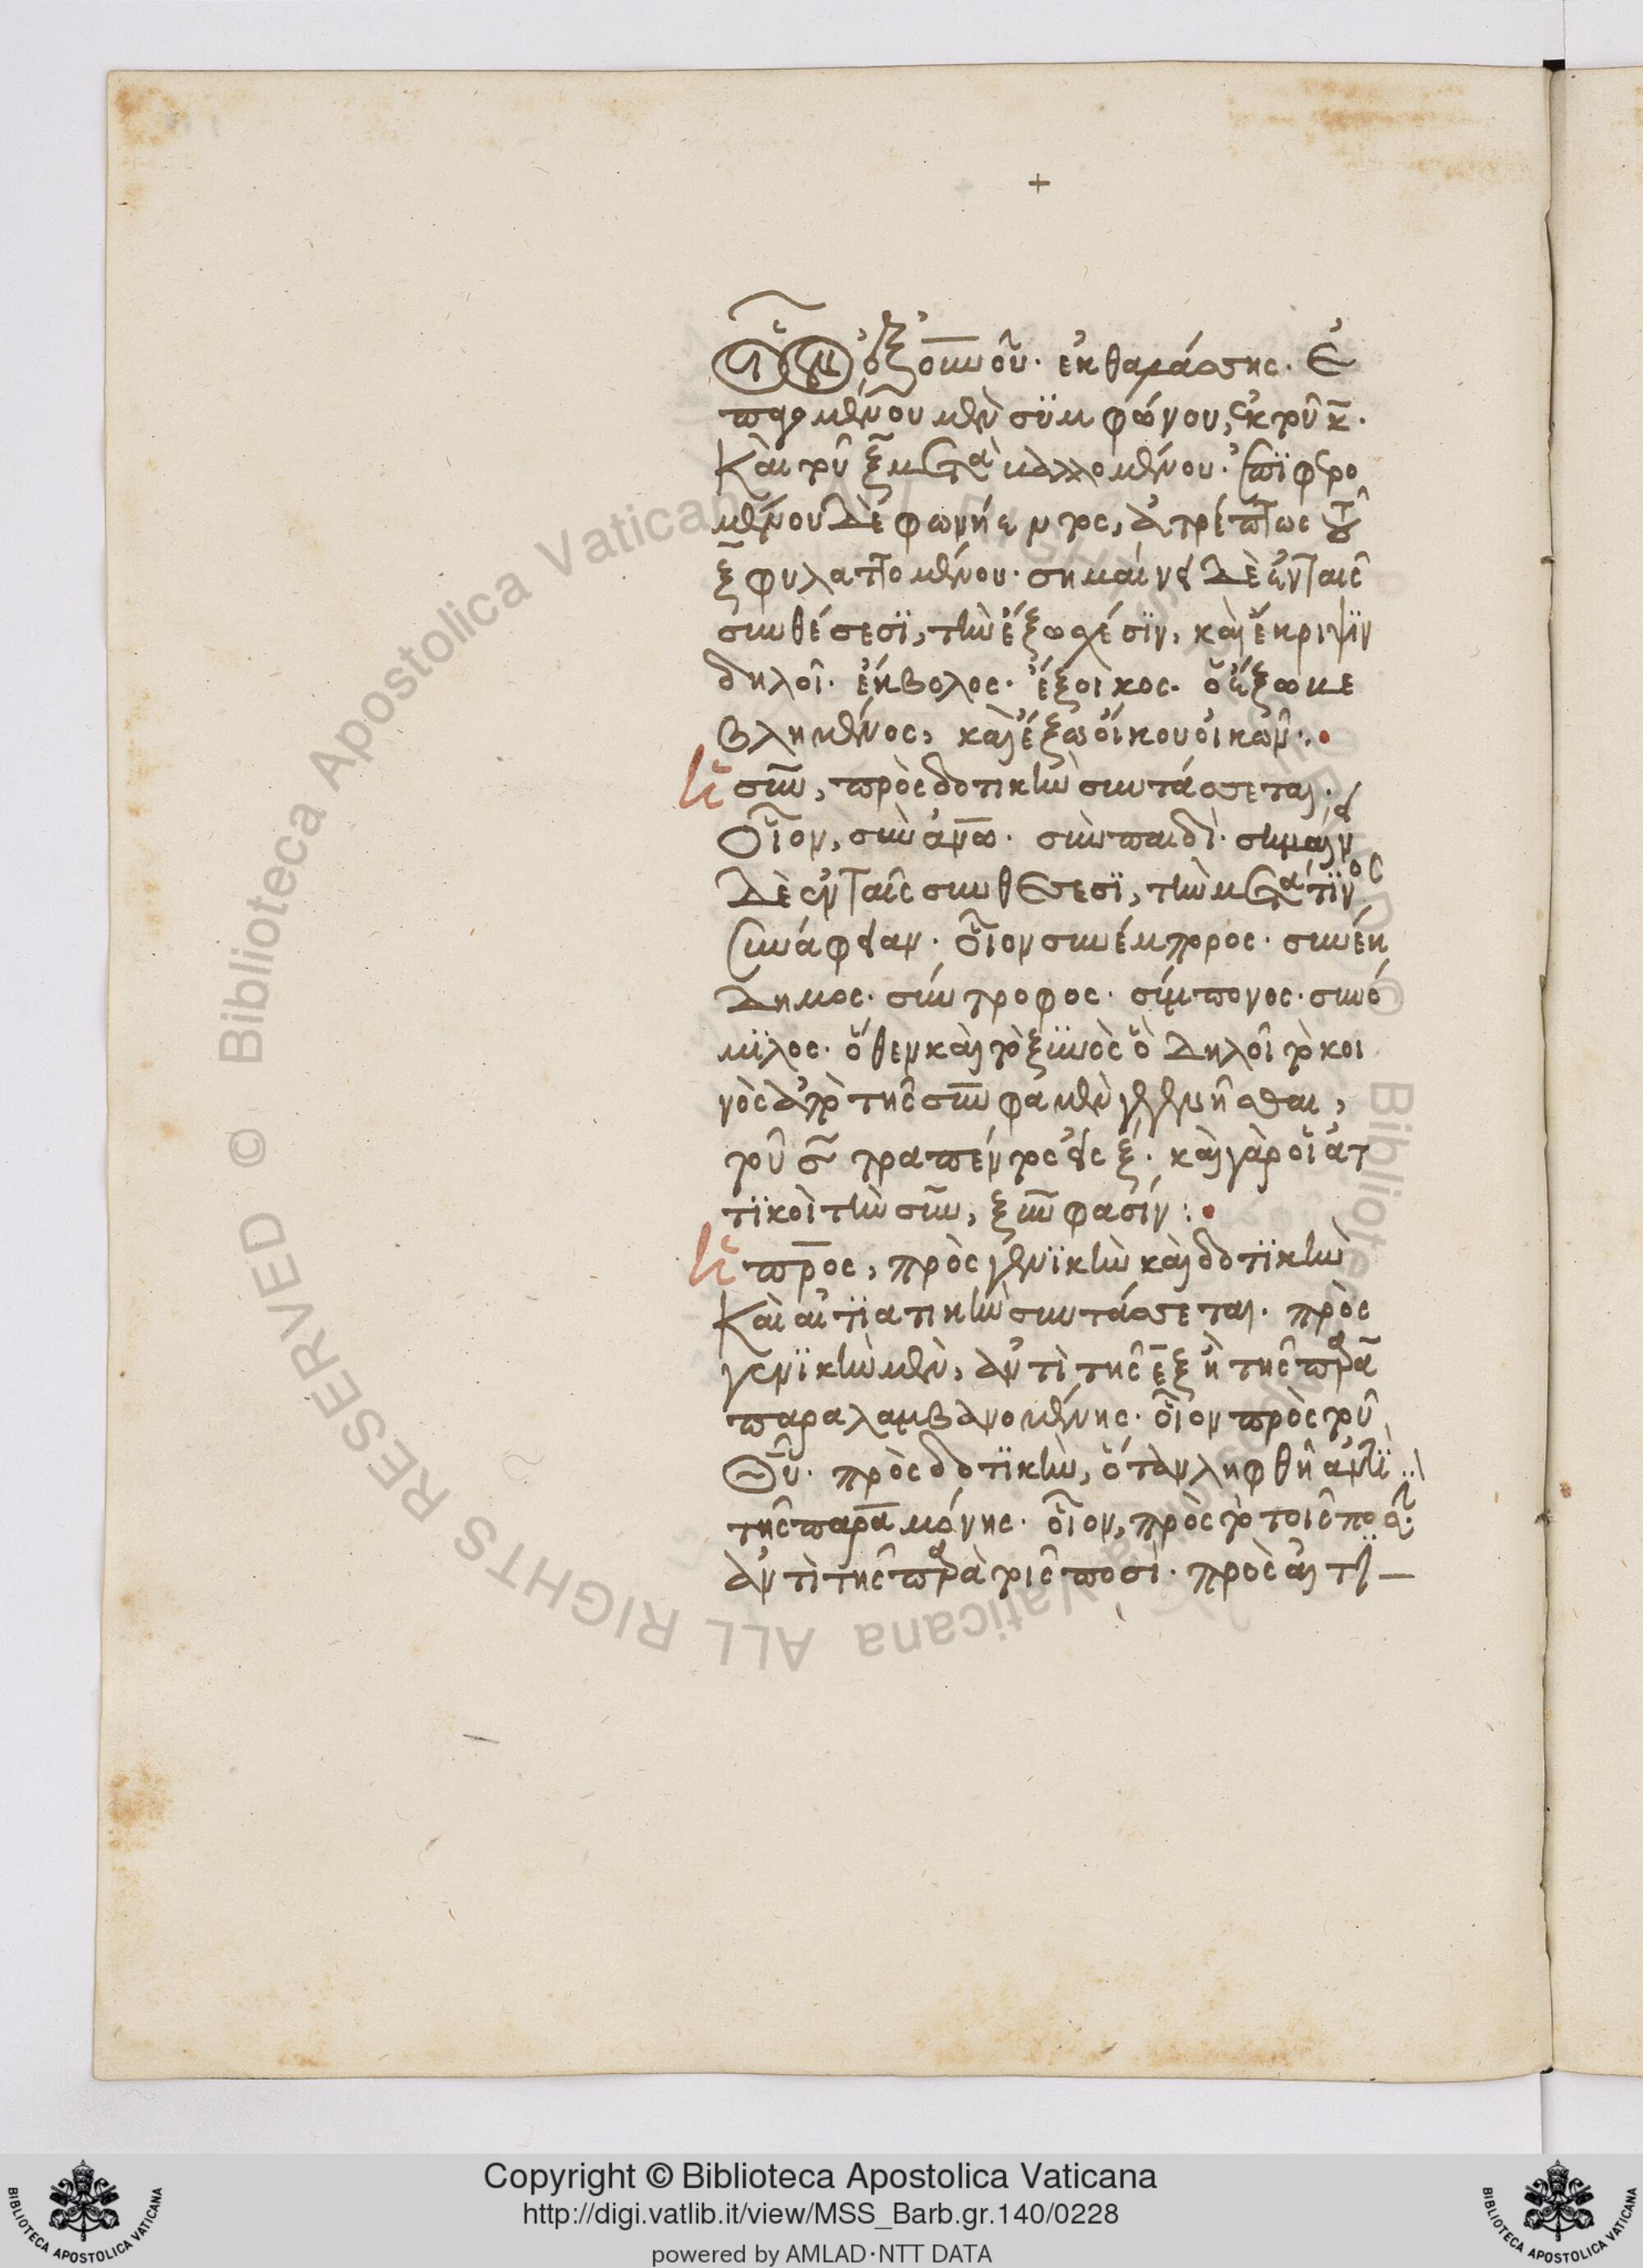 +
ἐξ οἴκου. ἐκ θαλάσσης. ἐ
παγομένου μὲν συμφώνου, ἐκ τοῦ κ.
Καὶ τοῦ ξ μεταβαλλομένου. ἐπιφερο
μένου δὲ φωνήεντος, ἀτρέπτως τοῦ
ξ φυλαττομένου. σημαίνει δὲ ἐν ταῖς
συνθέσεσι, τὴν ἔξω σχέσιν, καὶ ἔκριψιν
δηλοῖ. ἔκβολος. ἔξοικος. ὁ ἔξω κε
βλημένος, καὶ ἔξω οἴκου οἰκῶν:
σὺν, πρὸς δοτικὴν συντάσσεται.
Οἷον, σὺν ἀνω. σὺν παιδί. σημαίνει
δὲ ἐν ταῖς συνθέσεσι, τὴν μετά τινος
συνάφειαν. οἷον συνέμπορος. συνέκ
δημος. σύντροφος. σύμπονος. συνό
μιλος. ὅθεν καὶ τὸ ξυνὸς ὃ δηλοῖ τὸ κοι
νὸς ἀπὸ τῆς σὺν φαμὲν γεγενῆσθαι,
τοῦ σ τραπέντος εἰς ξ. καὶ γὰρ οἱ ἀτ
τικοὶ τὴν σὺν, ξὺν φασίν:
προς, πρὸς γενικὴν καὶ δοτικὴν
Καὶ αἰτιατικὴν συντάσσεται. πρὸς
γενικὴν μὲν, ἀντὶ τῆς ἐξ ἢ τῆς παρὰ
παραλαμβανομένης. οἷον πρὸς τοῦ
Θυ. πρὸς δοτικὴν, ὅταν ληφθῇ ἀντὶ
τῆς παρα μόνης. οἷον, πρὸς τὸ τοῖς ποσί.
ἀντὶ τῆς παρὰ τοῖς ποσί. πρὸς αἰτι
Copyright © Biblioteca Apostolica Vaticana
http://digi.vatlib.it/view/MSS_Barb.gr.140/0228
powered by AMLAD·NTT DATA
BIBLIOTECA APOSTOLICA VATICANA
BIBLIOTECA APOSTOLICA VATICANA